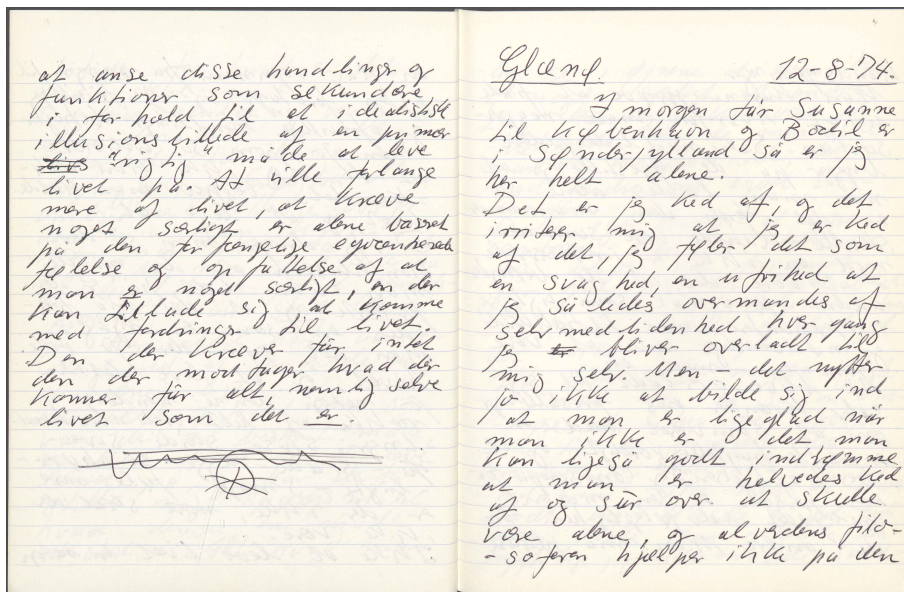 at anse disse handlinger og
funktioner som sekundære
i forhold til et idealistisk
illusionsbillede af en primær
livs "rigtig" måde at leve
livet på. At ville forlange
mere af livet, at kræve
noget særligt er alene baseret
på den forfængelige egocentriske
følelse og opfattelse af at
man er noget særligt, en der
kan tillade sig at komme
med fordringer til livet.
Den der kræver får intet
den der modtager hvad der
kommer får alt, nemlig selve
livet som det er.
Glænø. 12-8-74.
I morgen får Susanne
til København og Bodil er
i Sønderjylland så er jeg
her helt alene.
Det er jeg ked af, og det
irriterer mig at jeg er ked
af det, jeg føler det som
en svaghed, en ufrihed at
jeg således overmandes af
selvmedlidenhed hver gang
jeg bliver overladt til
mig selv. Men - det nytter
jo ikke at bilde sig ind
at man er ligeglad når
man ikke er det man
kan ligeså godt indrømme
at man er helvedes ked
af og sur over at skulle
være alene, og alverdens filo-
-soferen hjælper ikke på den